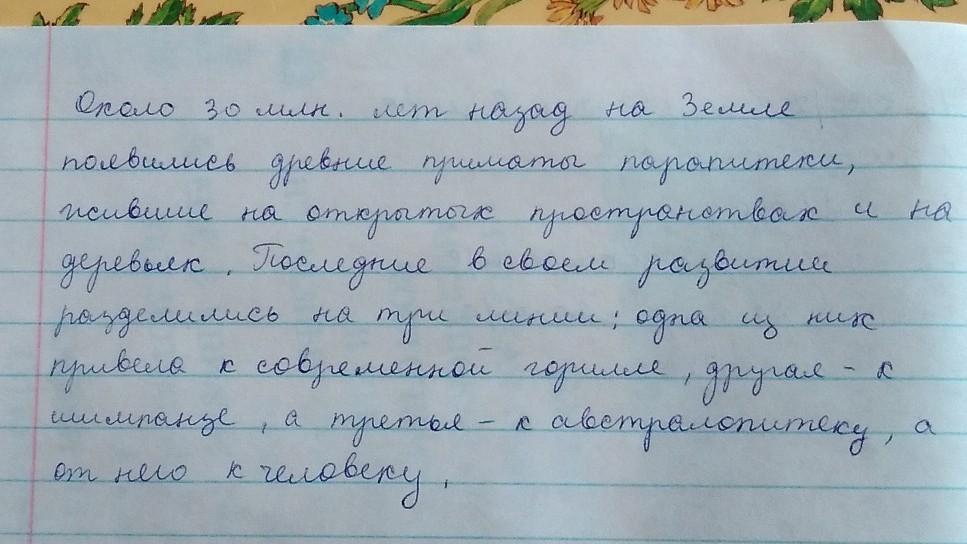 Около 30 млн. лет назад на Земле
появились древние приматы парапитеки,
жившие на открытых пространствах и на
деревьях. Последние в своем развитии
разделились на три линии: одна из них
привела к современной горилле, другая - к
шимпанзе, а третья - к австралопитеку, а
от него к человеку.